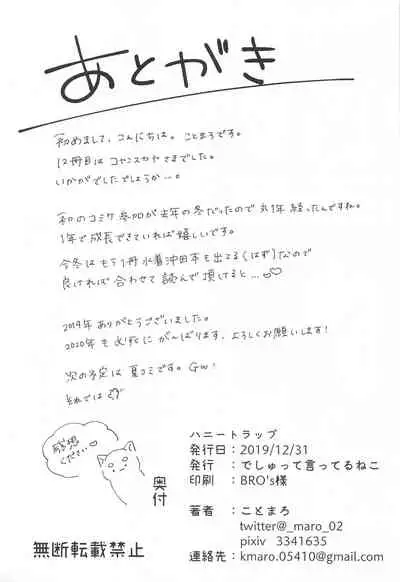 あとがき
初めまして、こんにちは。ことまろです。
12冊目はコヤンスカヤさまでした。
いかがでしたでしょうか…。
初のコミケ参加が去年の冬だったので丸1年経ったんですね。
1年で成長できていれば嬉しいです。
今冬はもう1冊水着沖田本も出てる(はず)なので
良ければ合わせて読んで頂けると…♡
2019年ありがとうございました。
2020年も必死にがんばります、よろしくお願いします!
次の予定は夏コミです。GW!
それでは
感想
ください
奥付
無断転載禁止
ハニートラップ
発行日：2019/12/31
発行 ： でしゅって言ってるねこ
印刷 ： BRO's様
著者 ： ことまろ
twitter@_maro_02
pixiv 3341635
連絡先：kmaro.05410@gmail.com